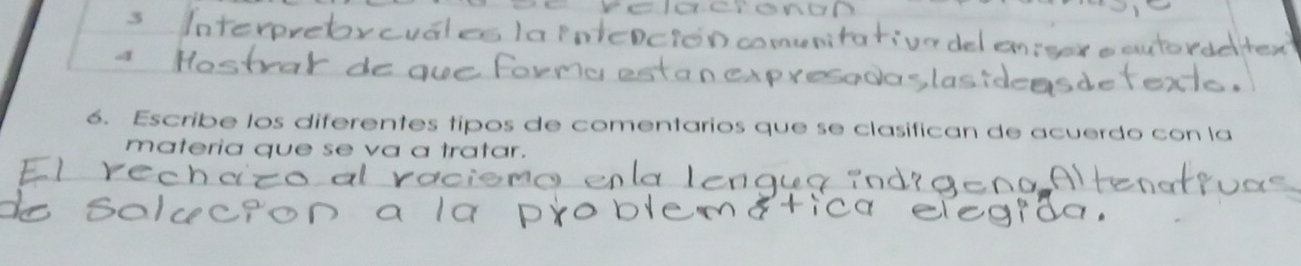 se relacionan
3 Interpretar cuáles la intención comunitativa del emisor o autor del text
4 Mostrar de que forma estan expresadas, las ideas de texto.
6. Escribe los diferentes tipos de comentarios que se clasifican de acuerdo con la
materia que se va a tratar.
El rechazo al racismo en la lengua indigena, Altenativas
de solucion a la problemática elegida.